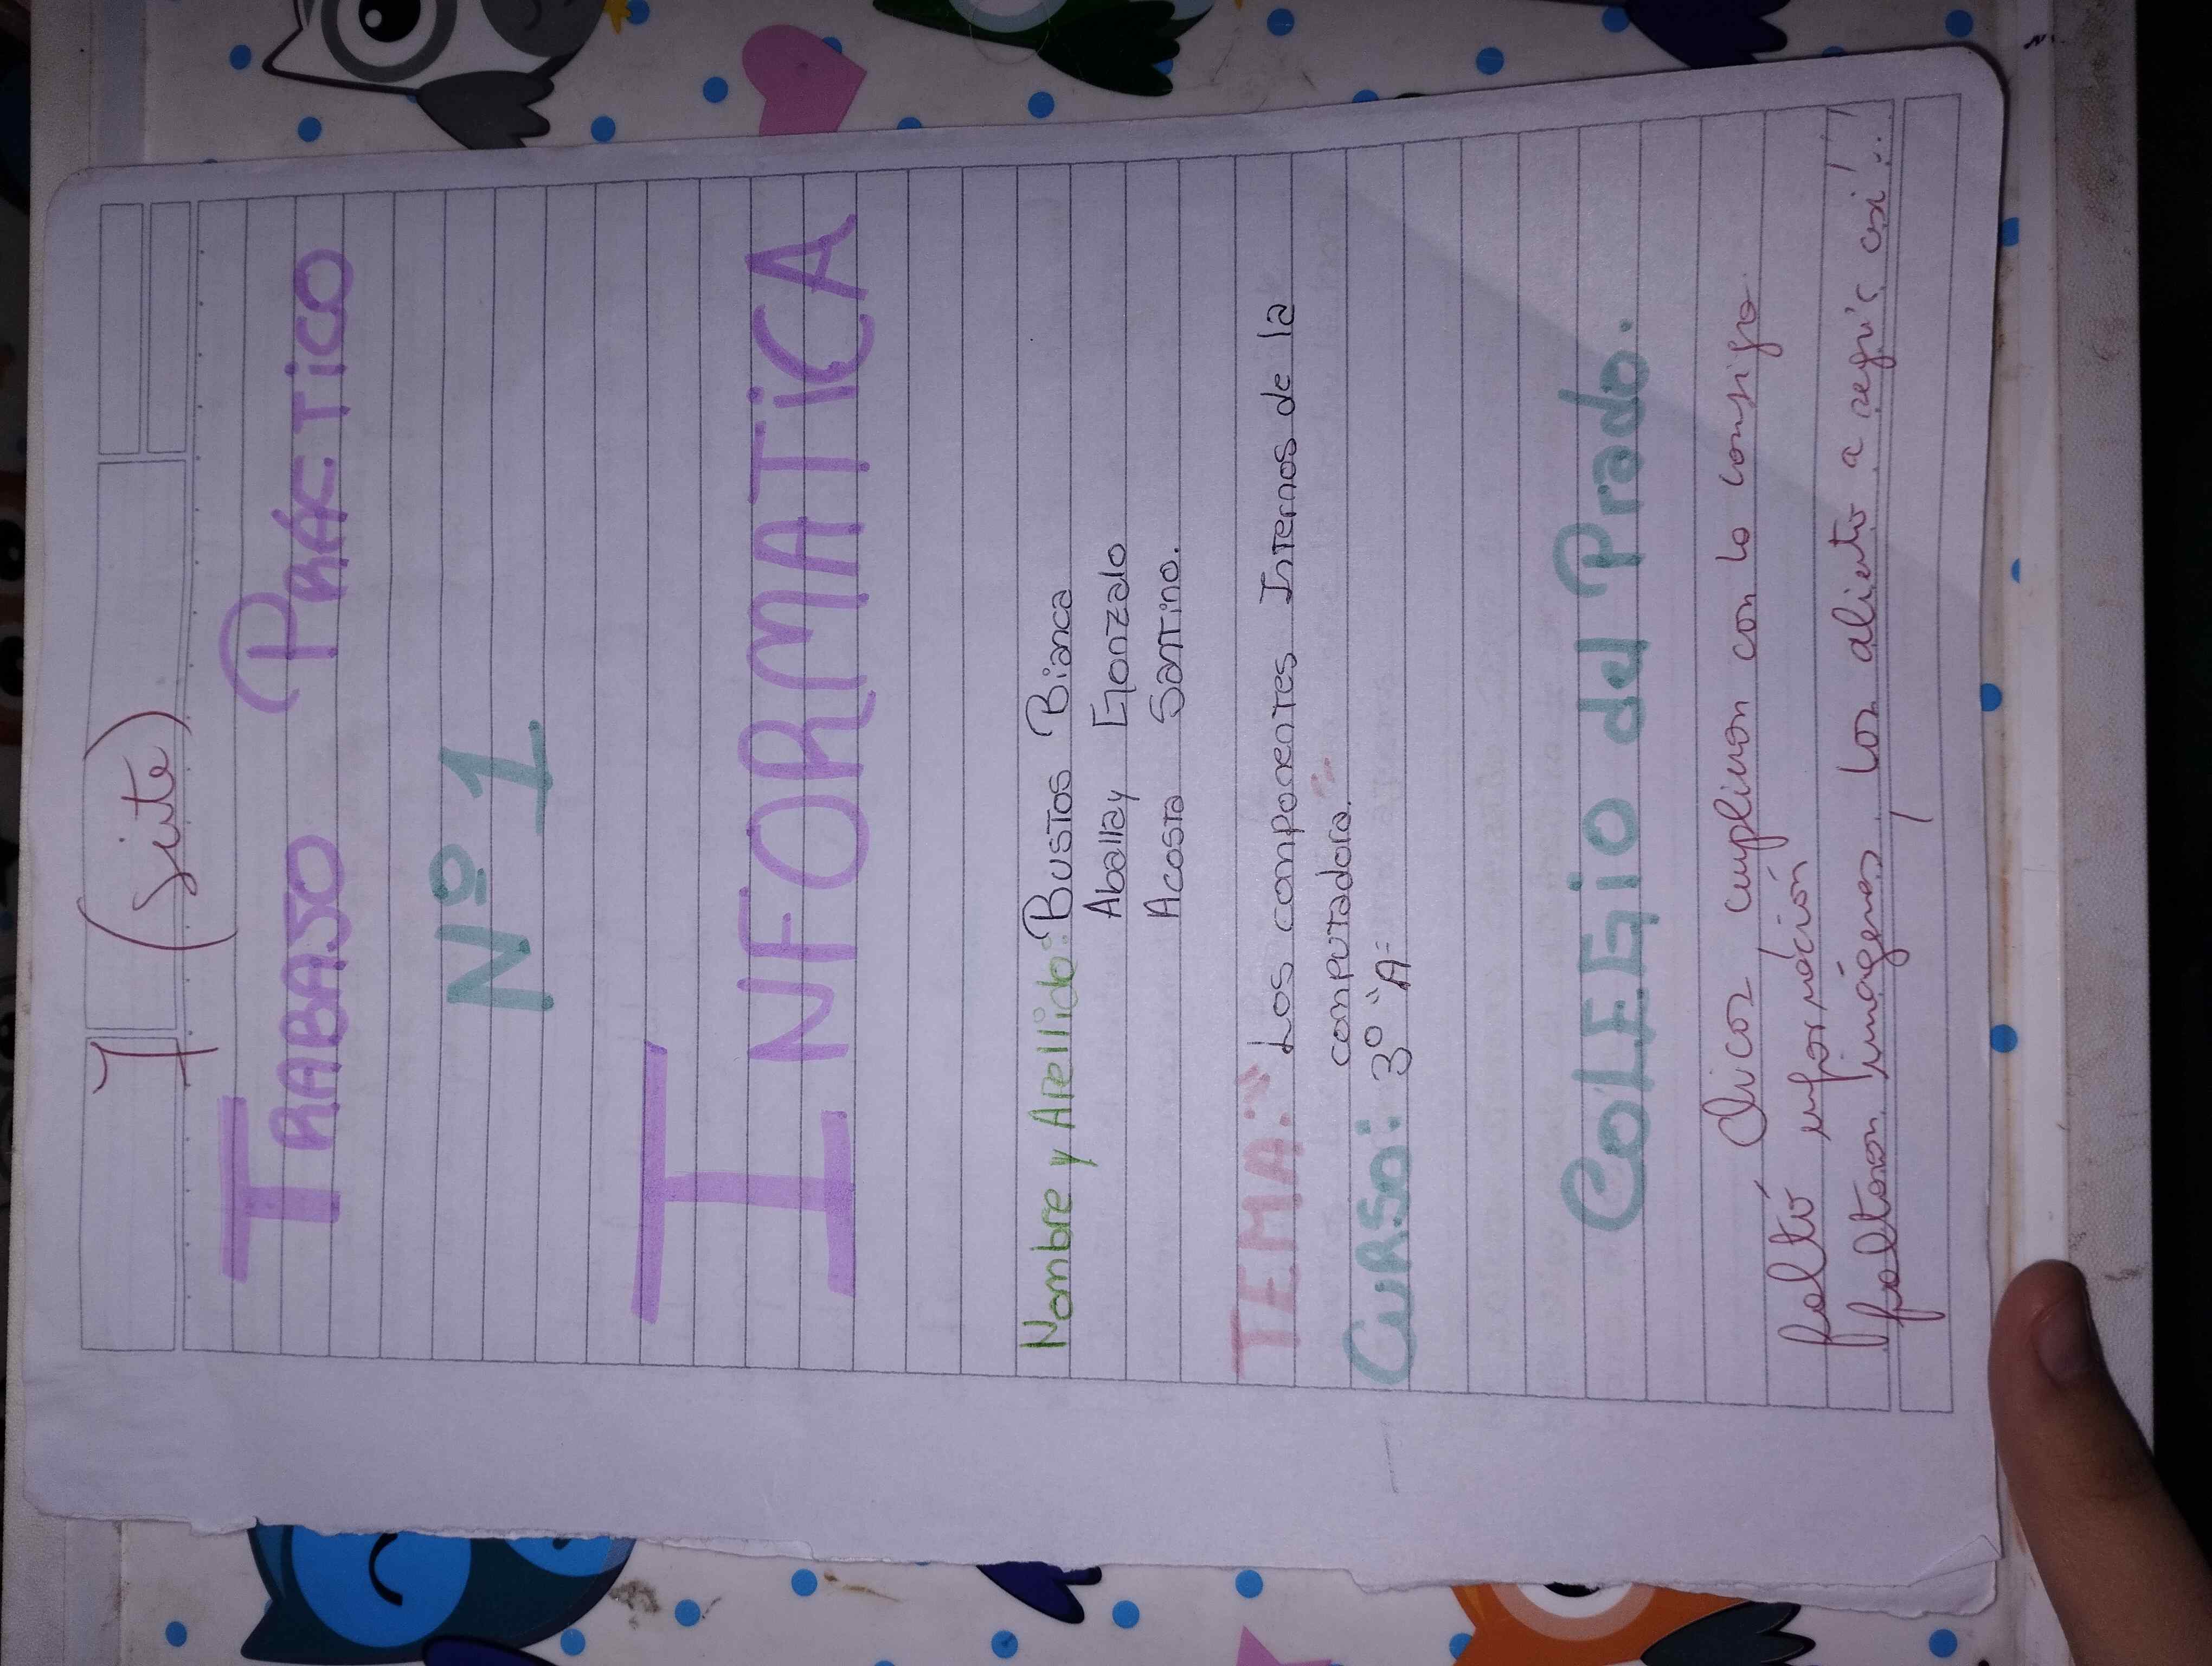 7 (siete)
TRABAJO PRÁCTICO
Nº 1
INFORMATiCA
Nombre y Apellido: Bustos Bianca
Aballay Gonzalo
Acosta Santino.
TEMA: "Los componentes Internos de la
computadora."
Curso: 3º "A"
COLEGiO del Prado.
Chicos cumplieron con lo consigna
faltó información
faltaron imágenes, los aliento a seguir así!!